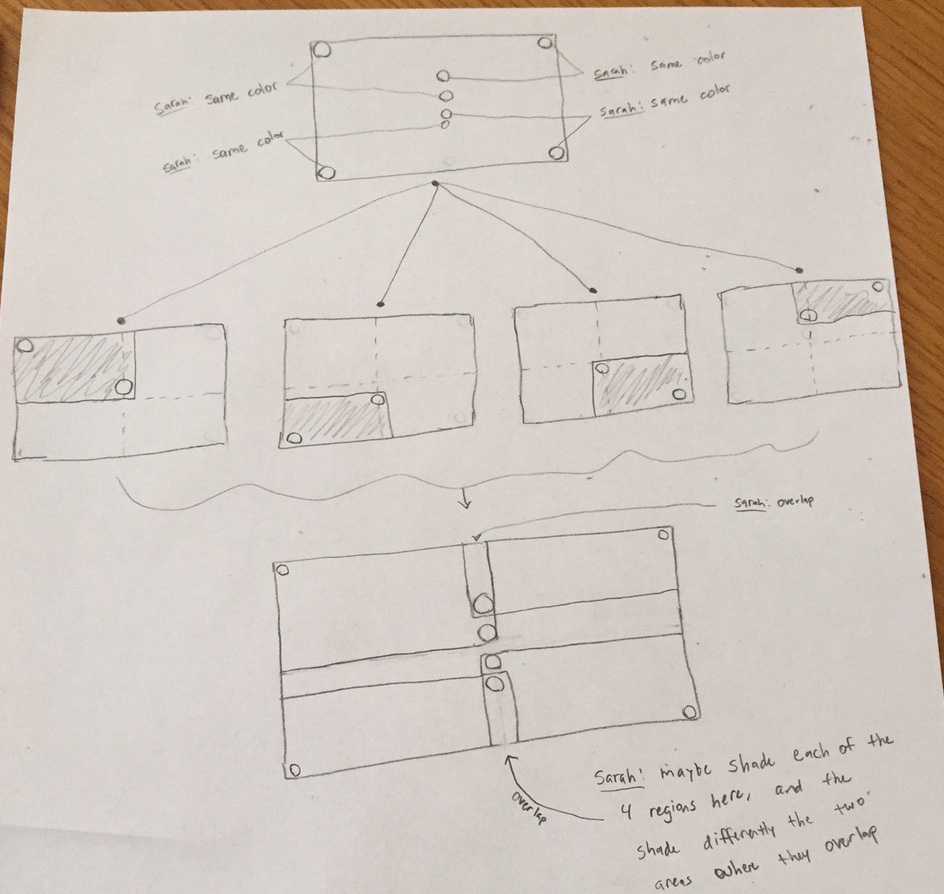 Sarah: same color
Sarah: same color
Sarah: same color
Sarah: same color
Sarah: overlap
overlap
Sarah: maybe shade each of the
4 regions here, and the
shade differently the two
areas where they overlap